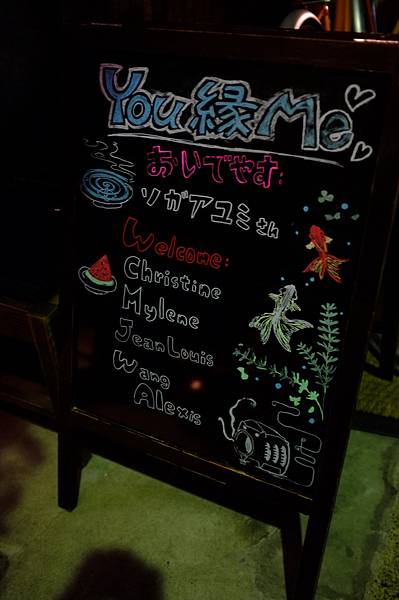 You 縁 Me
おいでやす:
ソガアユミさん
Welcome:
Christine
Mylene
JeanLouis
Wang
Alexis